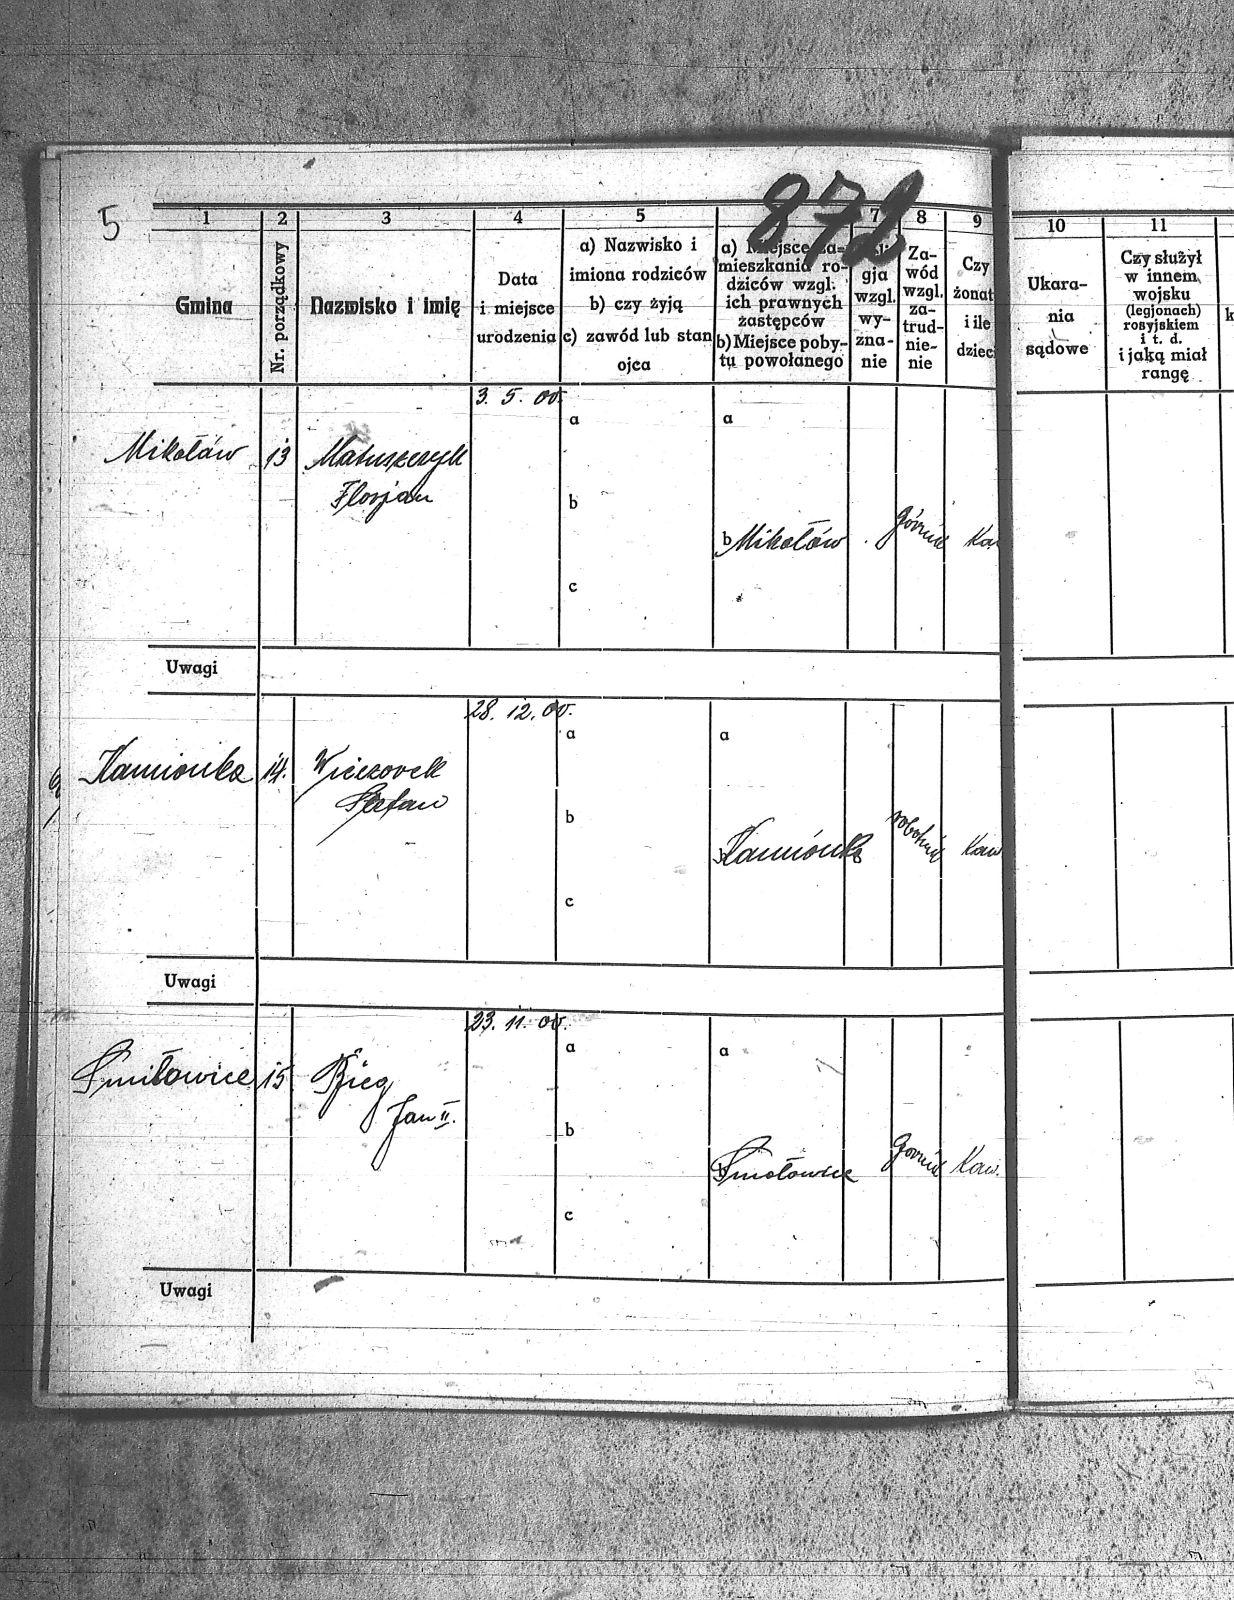 5
872
1
2
3
4
5
7
8
9
10
11
Gmina
Nr. porządkowy
Nazwisko i imię
Data
i miejsce
urodzenia
a) Nazwisko i
imiona rodziców
b) czy żyją
c) zawód lub stan
ojca
a) Miejsce za-
mieszkania ro-
dziców wzgl.
ich prawnych
zastępców
b) Miejsce poby-
tu powołanego
gja
wzgl.
wy-
zna-
nie
Za-
wód
wzgl.
za-
trud-
nie-
nie
Czy
żonat
i ile
dzieci
Ukara-
nia
sądowe
Czy służył
w innem
wojsku
(legjonach)
rosyjskiem
i t. d.
i jaką miał
rangę
k
3. 5. 00.
a
a
Mikołów 13 Matuszczyk
Florjan
b
b Mikołów . Górnik Kaw
c
Uwagi
28. 12. 00.
a
a
Kamionka 14. Wieczorek
Stefan
b
b Kamionka robotnik Kaw
c
Uwagi
23. 11. 00.
a
a
Śmiłowice 15 Bieg
Jan II.
b
b Śmołowice Górnik Kaw.
c
Uwagi